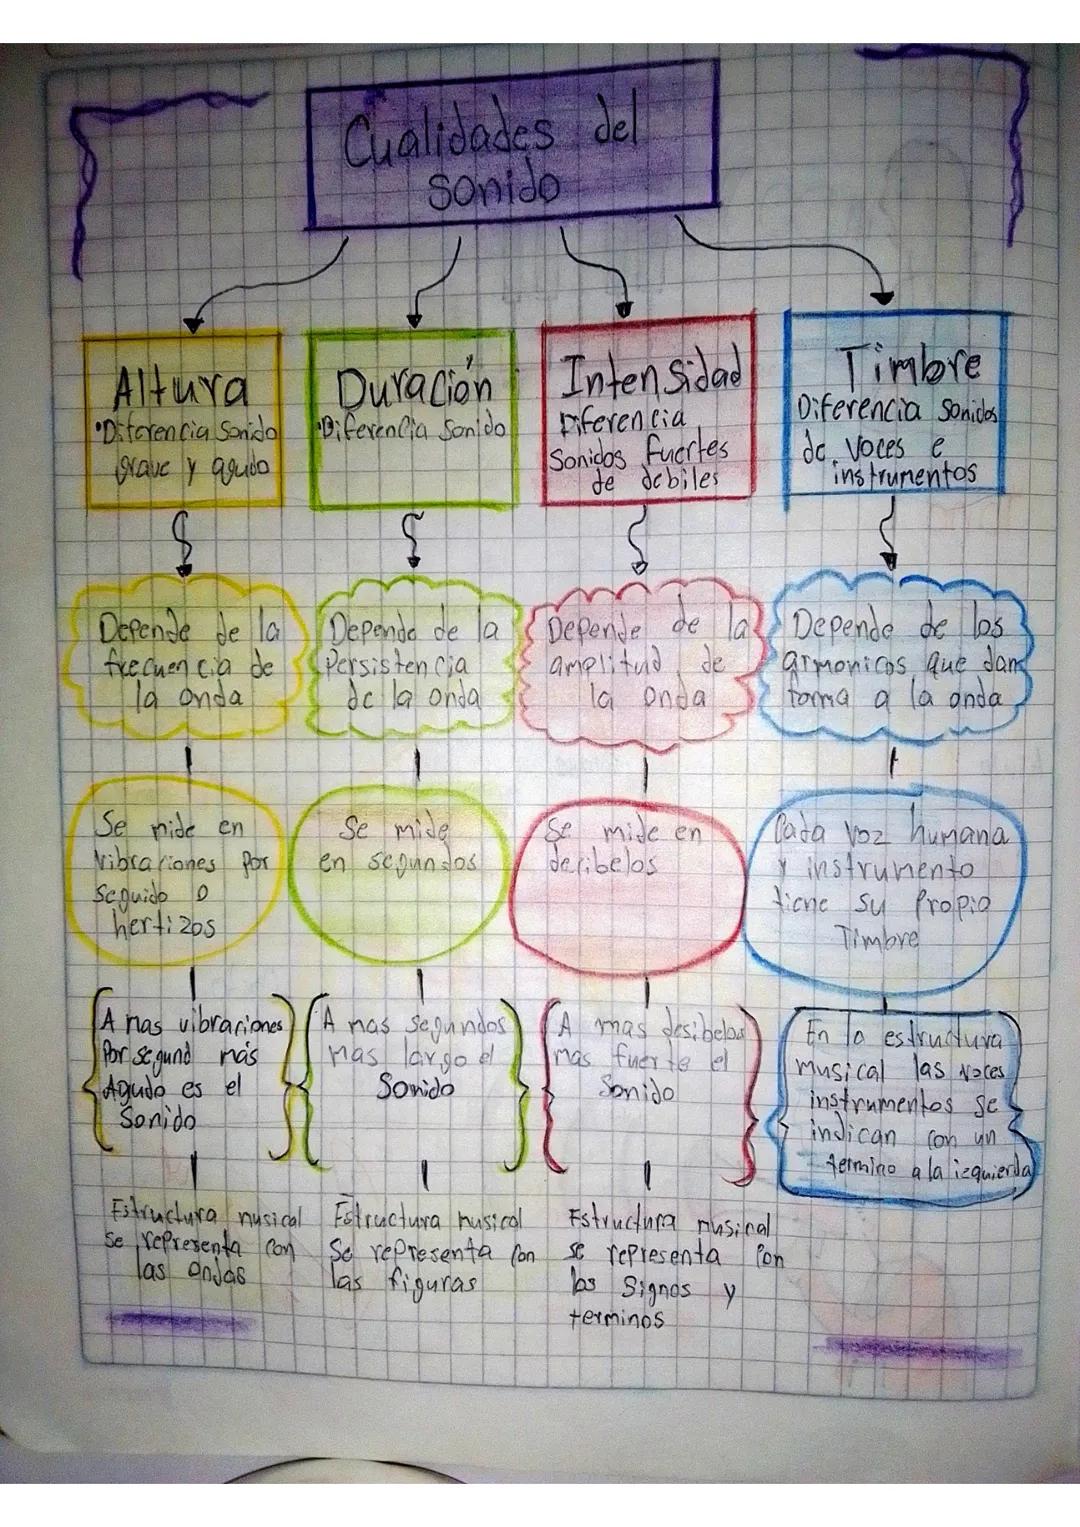 Cualidades del
sonido
Altura
•Diferencia Sonido
grave y agudo
Duración
•Diferencia Sonido
Intensidad
Diferencia
Sonidos fuertes
de debiles
Timbre
Diferencia Sonidos
de voces e
instrumentos
Depende de la
frecuencia de
la onda
Depende de la
Persistencia
de la onda
Depende de la
amplitud de
la onda
Depende de los
armonicos que dan
forma a la onda
Se mide en
Vibraciones por
Seguido o
hertizos
Se mide
en segundos
Se mide en
decibelos
Cada voz humana
y instrumento
tiene su propio
Timbre
A mas vibraciones
Por segund más
Agudo es el
Sonido
A mas segundos
mas largo el
Sonido
A mas desibelos
mas fuerte el
Sonido
En la estructura
musical las voces
instrumentos se
indican con un
termino a la izquierda
Estructura musical
se representa con
las ondas
Estructura musical
Se representa con
las figuras
Estructura musical
se representa con
los signos y
terminos